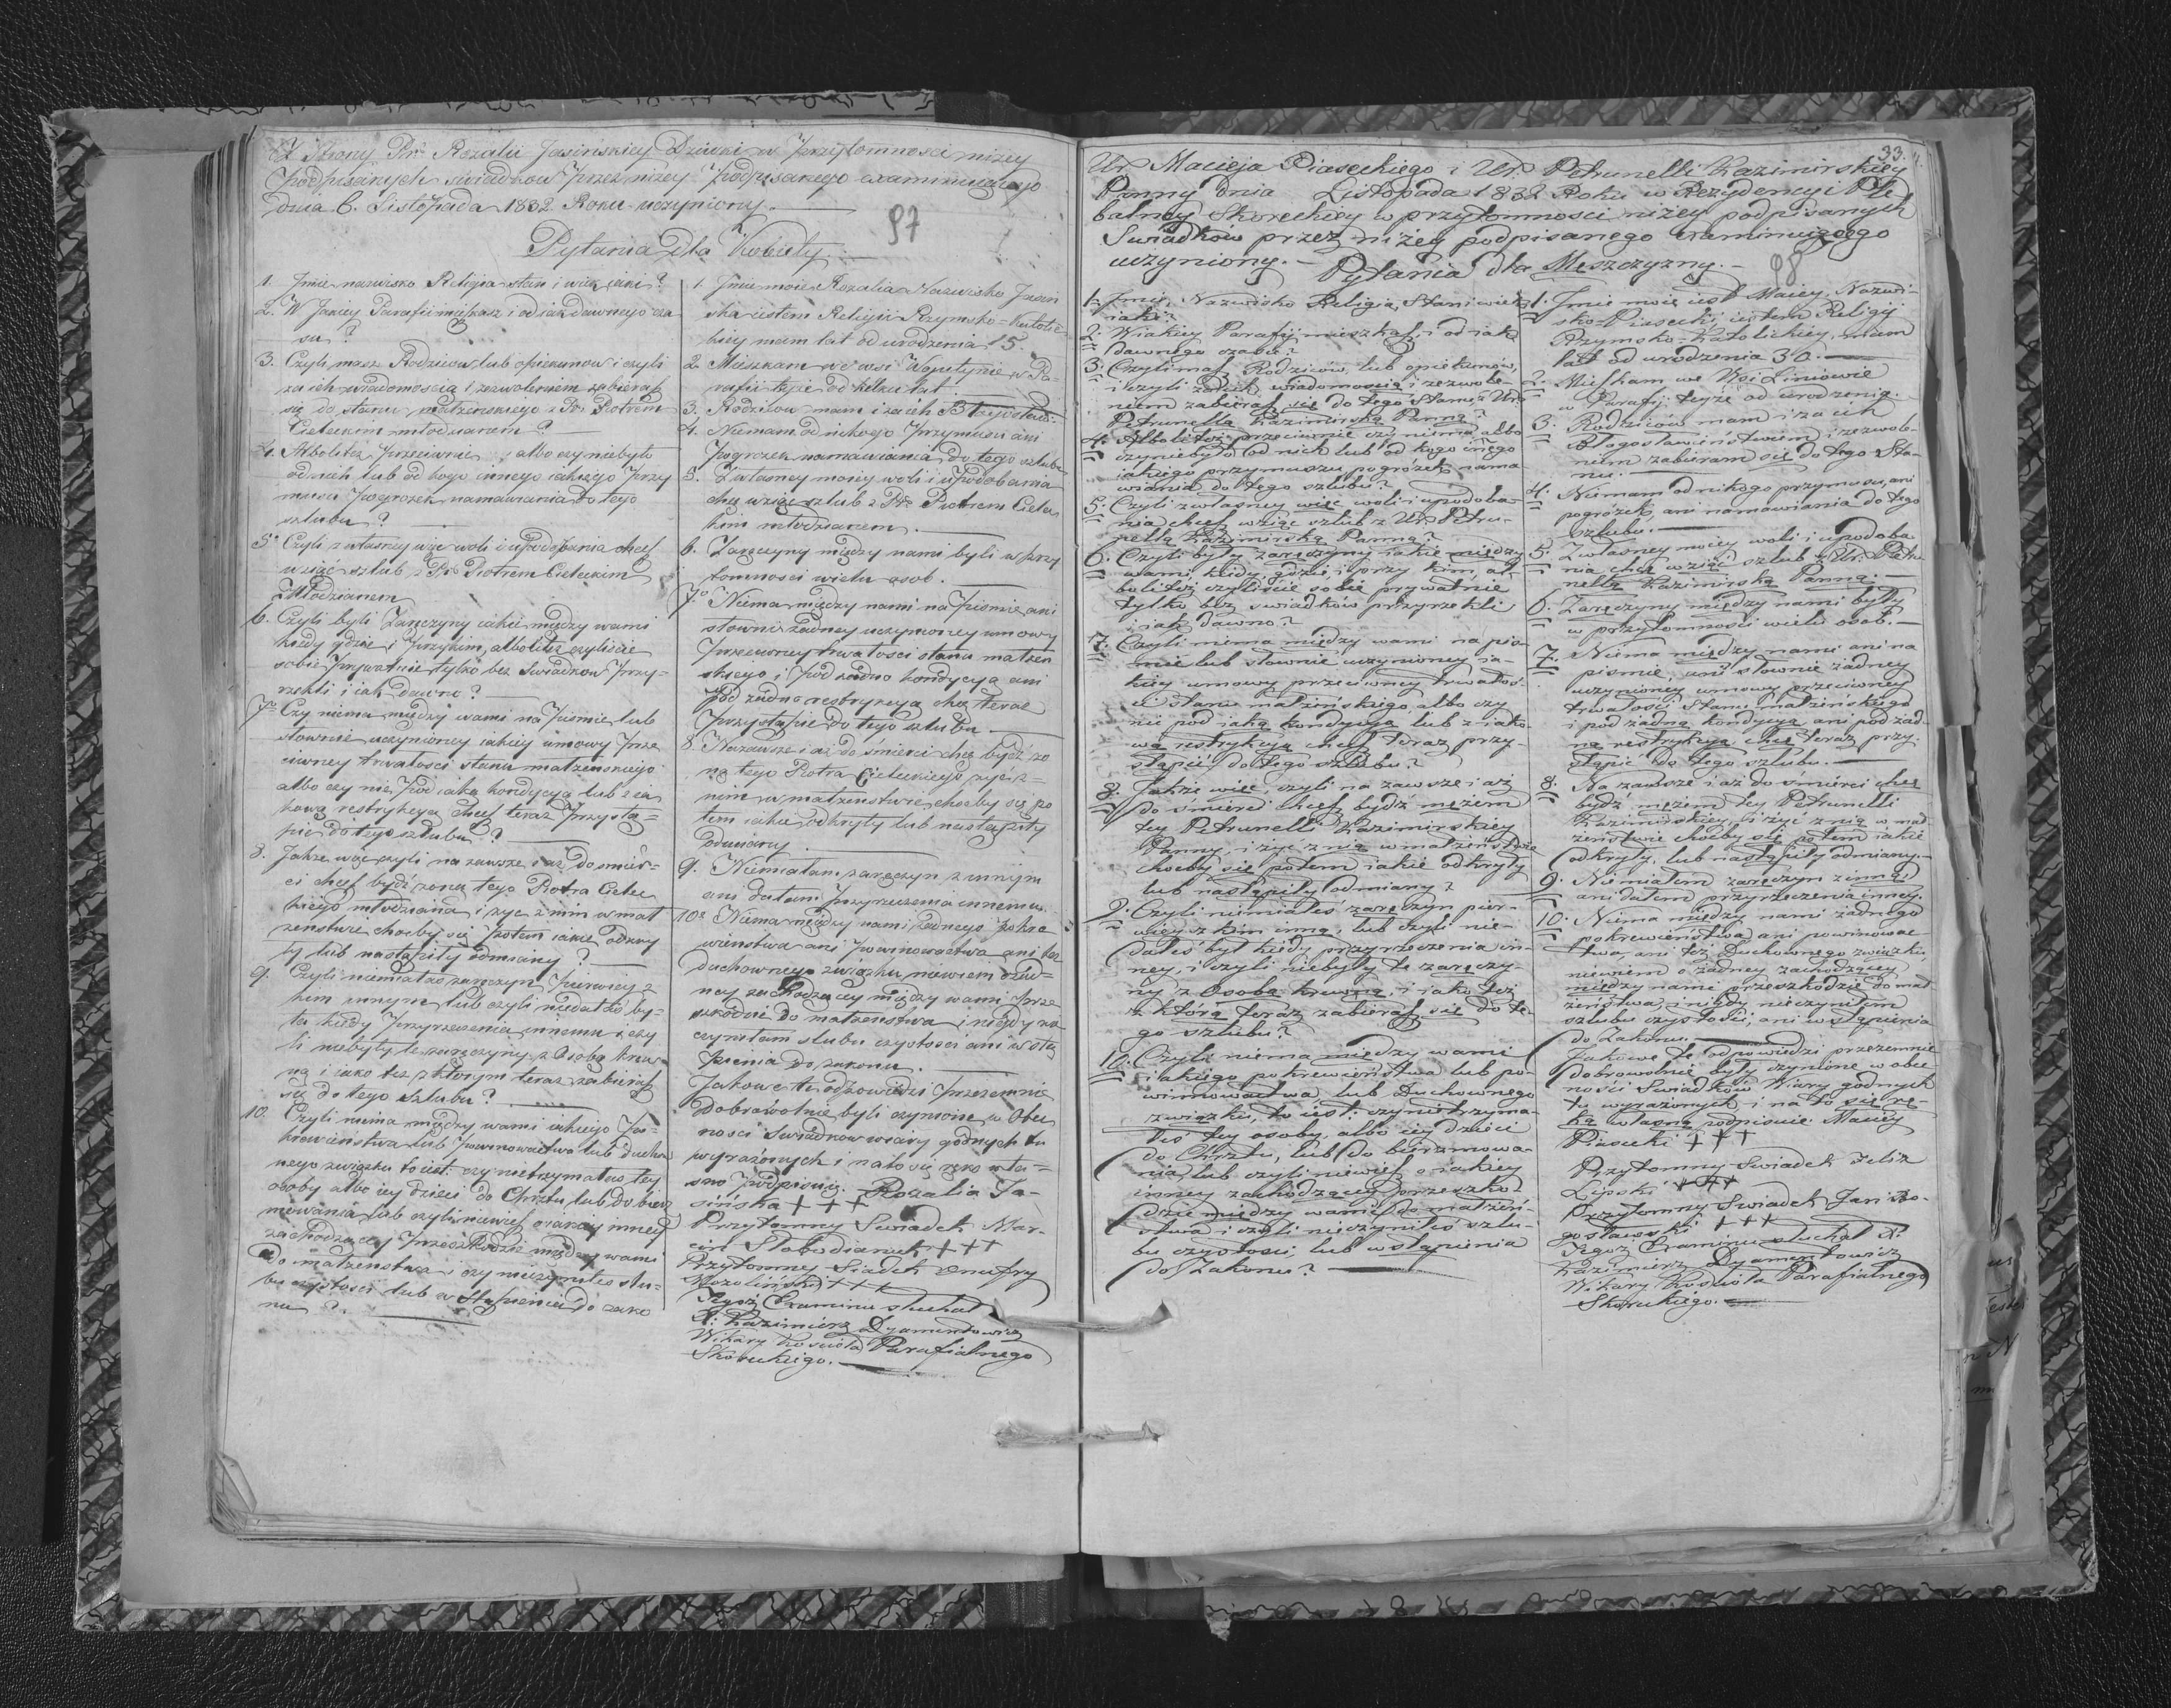 Z Strony Pr. Rozalii Jasinskiey Dziewki w Przytomnosci niżey
podpisanych swiadkow przez niżey podpisanego examinuiącego
dnia 6. Listopada 1832 Roku uczyniony.
97
Pytania dla Kobiety.
1. Jmie nazwisko Religia stan i wiek iaki?
2. W Jakiey Parafii mieszkasz i od iak dawnego cza
su?
3. Czyli masz Rodzicow lub opiekunow i czyli
za ich wiadomoscią i zezwoleniem zabierasz
się do stanu małżenskiego z Pr. Piotrem
Cieleckim młodzianem?
4. Albo też przeciwnie albo czy niebyło
od nich lub od kogo innego iakiego przy
musu pogrozek namawiania do tego
szlubu?
5. Czyli z własney więc woli i upodobania chcesz
wziąć szlub z Pr. Piotrem Cieleckim
Młodzianem
6. Czyli byli Zaręczyny iakie między wami
kiedy gdzie i przy kim, albo też czyliście
sobie prywatnie tylko bez Swiadkow przy-
rzekli i iak dawno?
7. Czy niema między wami na pismie lub
słownie uczynioney iakiey umowy prze
ciwney trwałosci stanu małzenskiego
albo czy nie pod iaką kondycyą lub z ia
kową restrykcyą chcesz teraz przystą=
pic do tego szlubu?
8. Jakże więc czyli na zawsze i az do smier-
ci chcesz bydź zoną tego Piotra Cielec
kiego młodziana i zyc z nim w mał
zenstwie choćby się potem iakie odkry
ły lub nastąpiły odmiany?
9. Czyli niemiałas zaręczyn pierwiey z
kim innym lub czyli niedałaś by-
ła kiedy przyrzeczenia innemu i czy
li niebyły te zaręczyny z Osobą krew
ną i iako tez z ktorym teraz zabierasz
się do tego szlubu?
10. Czyli niema między wami iakiego po=
krewienstwa lub powinowactwa lub duchow
nego związku to iest: czy nietrzymałas tey
osoby albo iey dzieci do Chrztu lub do bierz
mowania lub czyli niewiesz o iakiey inney
zachodzącey przeszkodzie między wami
do małzenstwa i czy nieczyniłas szlu-
bu czystosci lub wstąpienia do zako
nu?
1. Jmie moie Rozalia Nazwisko Jasin
ska iestem Religii Rzymsko=Katolic
kiey mam lat od urodzenia 15.
2. Mieszkam we wsi w Pa
rafii teyże od kilku lat
3. Rodzicow mam i za ich Błogosław:
4. Niemam od nikogo przymusu ani
pogrozek namawiania do tego szlubu
5. Z własney moiey woli i upodobania
chcę wziąć szlub z Pr. Piotrem Cielec
kim młodzianem.
6. Zaręczyny między nami byli w przy
tomnosci wielu osob.
7. Niema między nami na pismie ani
słownie żadney uczynioney umowy
przeciwney trwałosci stanu małzen
skiego i pod żadno kondycyą ani
pod żadno restrykcyą chcę teraz
przystąpic do tego szlubu
8. Nazawsze i aż do smierci chcę bydź zo
ną tego Piotra Cieleckiego zyc z=
nim w małzenstwie choćby się po
tem iakie odkryły lub nastąpiły
odmiany
9. Niemiałam zaręczyn z innym
ani dałam przyrzeczenia innemu
10. Niema między nami żadnego pokre
wienstwa ani powinowactwa ani też
duchownego związku niewiem o żad-
ney zachodzącey między wami prze
szkodzie do małzenstwa i nigdy nie
czyniłam slubu czystosci ani wstą
pienia do zakonu.
Jakowe te odpowiedzi przezemnie
dobrowolnie byli czynione w Obec
nosci Swiadkow wiary godnych tu
wyrażonych i na to się ręko wła=
sno podpisuię. Rozalia Ja-
sińska +++
Przytomny Swiadek Mar-
cin Słobodianuk +++
Przytomny Siadek Onufry
+++
Tegoż Examinu słuchał
X: Kazimierz Dyamentowicz
Wikary Kościoła Parafialnego
Skoreckiego.
33.
Ur. Macieja Piaseckiego i Ur. Petrunelli Kazimirskiey
Panny dnia Listopada 1832 Roku w Rezydencyi Ple
balney Skoreckiey w przytomnosci niżey podpisanych
Swiadków przez niżey podpisanego examinuiącego
uczyniony.
98
Pytania dla Męszczyzny.
1. Jmie, Nazwisko Religia, Stan i wiek
iaki?
2. W iakiey Parafij mieszkasz, i od iak
dawnego czasu?
3. Czyli masz Rodziców, lub opiekunów,
i czyli za ich wiadomoscią i zezwole-
niem zabierasz się do tego Stanu z Ur.
Petrunellą Kazimirską Panną?
4. Albo li też przeciwnie czy niema albo
czy niebyło od nich lub od kogo inego
iakiego przymusu pogrożek nama
wiania do tego szlubu?
5. Czyli z własney więc woli i upodoba-
nia chcesz wziąć szlub z Ur. Petru-
nellą Kazimirską Panną?
6. Czyli były zaręczyny iakie między
wami, kiedy, gdzie, i przy kim, al
bo li też czyliście sobie prywatnie
tylko bez swiadków przyrzekli
i iak dawno?
7. Czyli niema między wami na pis-
mie lub słownie uczynioney ia-
kiey umowy przeciwney trwałoś-
ci stanu małżińskiego, albo czy
nie pod iaką kondycyą lub z iako-
wą restrykcyą chcesz teraz przy-
stąpić do tego szlubu?
8. Jakże więc, czyli na zawsze i aż
do śmierci chcesz bydź mężem
tey Petrunelli Kazimirskiey
Panny, i żyć z nią w małżeństwie
choćby się potem iakie odkryły
lub nastąpiły odmiany?
9. Czyli niemiałeś zaręczyn pier-
wiey z kim inną, lub czyli nie-
dałeś był kiedy przyrzeczenia in-
ney, i czyli niebyły te zaręczy-
ny z Osobą krewną, i iako też
z którą teraz zabierasz się do te-
go szlubu?
10. Czyli niema między wami
iakiego pokrewieństwa lub po-
winnowactwa, lub Duchownego
związku, to iest: czy nietrzyma-
łeś tey osoby, albo iey dzieci
do Chrztu, lub do bierzmowa-
nia, lub czyli niewiesz o iakiey
inney zachodzącey przeszko-
dzie między wami do małżeń-
stwa i czyli nieczyniłeś szlu-
bu czystosci, lub wstąpienia
do Zakonu?
1. Jmie moie iest Maciey, Nazwi-
sko Piasecki, iestem Religij
Rzymsko-Katolickiey, mam
lat od urodzenia 30.
2. Mieszkam we Wsi Liniowie
w Parafij teyże od urodzenia.
3. Rodziców mam i za ich
Błogosławieństwem i zezwole-
niem zabieram się do tego Sta-
nu.
4. Niemam od nikogo przymusu, ani
pogrożek, ani namawiania do tego
szlubu.
5. Z własney moiey woli i upodoba
nia chcę wziąć szlub z Ur. Petru
nellą Kazimirską Panną.
6. Zaręczyny między nami były
w przytomności wielu osob.
7. Niema między nami ani na
pismie, ani słownie żadney
uczynioney umowy przeciwney
trwałości Stanu małżinskiego
i pod żadną kondycyą ani pod żad-
ną restrykcyą chcę teraz przy-
stąpić do tego szlubu.
8. Na zawsze i aż do śmierci chcę
bydź mężem tey Petrunelli
Kazimirskiey, i żyć z nią w mał-
żeństwie choćby się potem iakie
odkryły, lub nastąpiły odmiany.
9. Niemiałem zaręczyn z inną,
ani dałem przyrzeczenia inney.
10. Niema między nami żadnego
pokrewieństwa ani powinowac
twa, ani też Duchownego związku,
niewiem o żadney zachodzącey
między nami przeszkodzie do mał
żeństwa, i nigdy nieczyniłem
szlubu czystości, ani wstąpienia
do Zakonu.
Jakowe te odpowiedzi przezemnie
dobrowolnie były czynione w obec
ności Swiadków Wiary godnych
tu wyrażonych i na to się rę-
ką własną podpisuię. Maciey
Piasecki +++
Przytomny Swiadek Felix
Lipski +++
Przytomny Swiadek Jan Bo-
gosławski +++
Tegoż Examinu słuchał X.
Kazimierz Dyamentowicz
Wikary Kościoła Parafialnego
Skoreckiego.